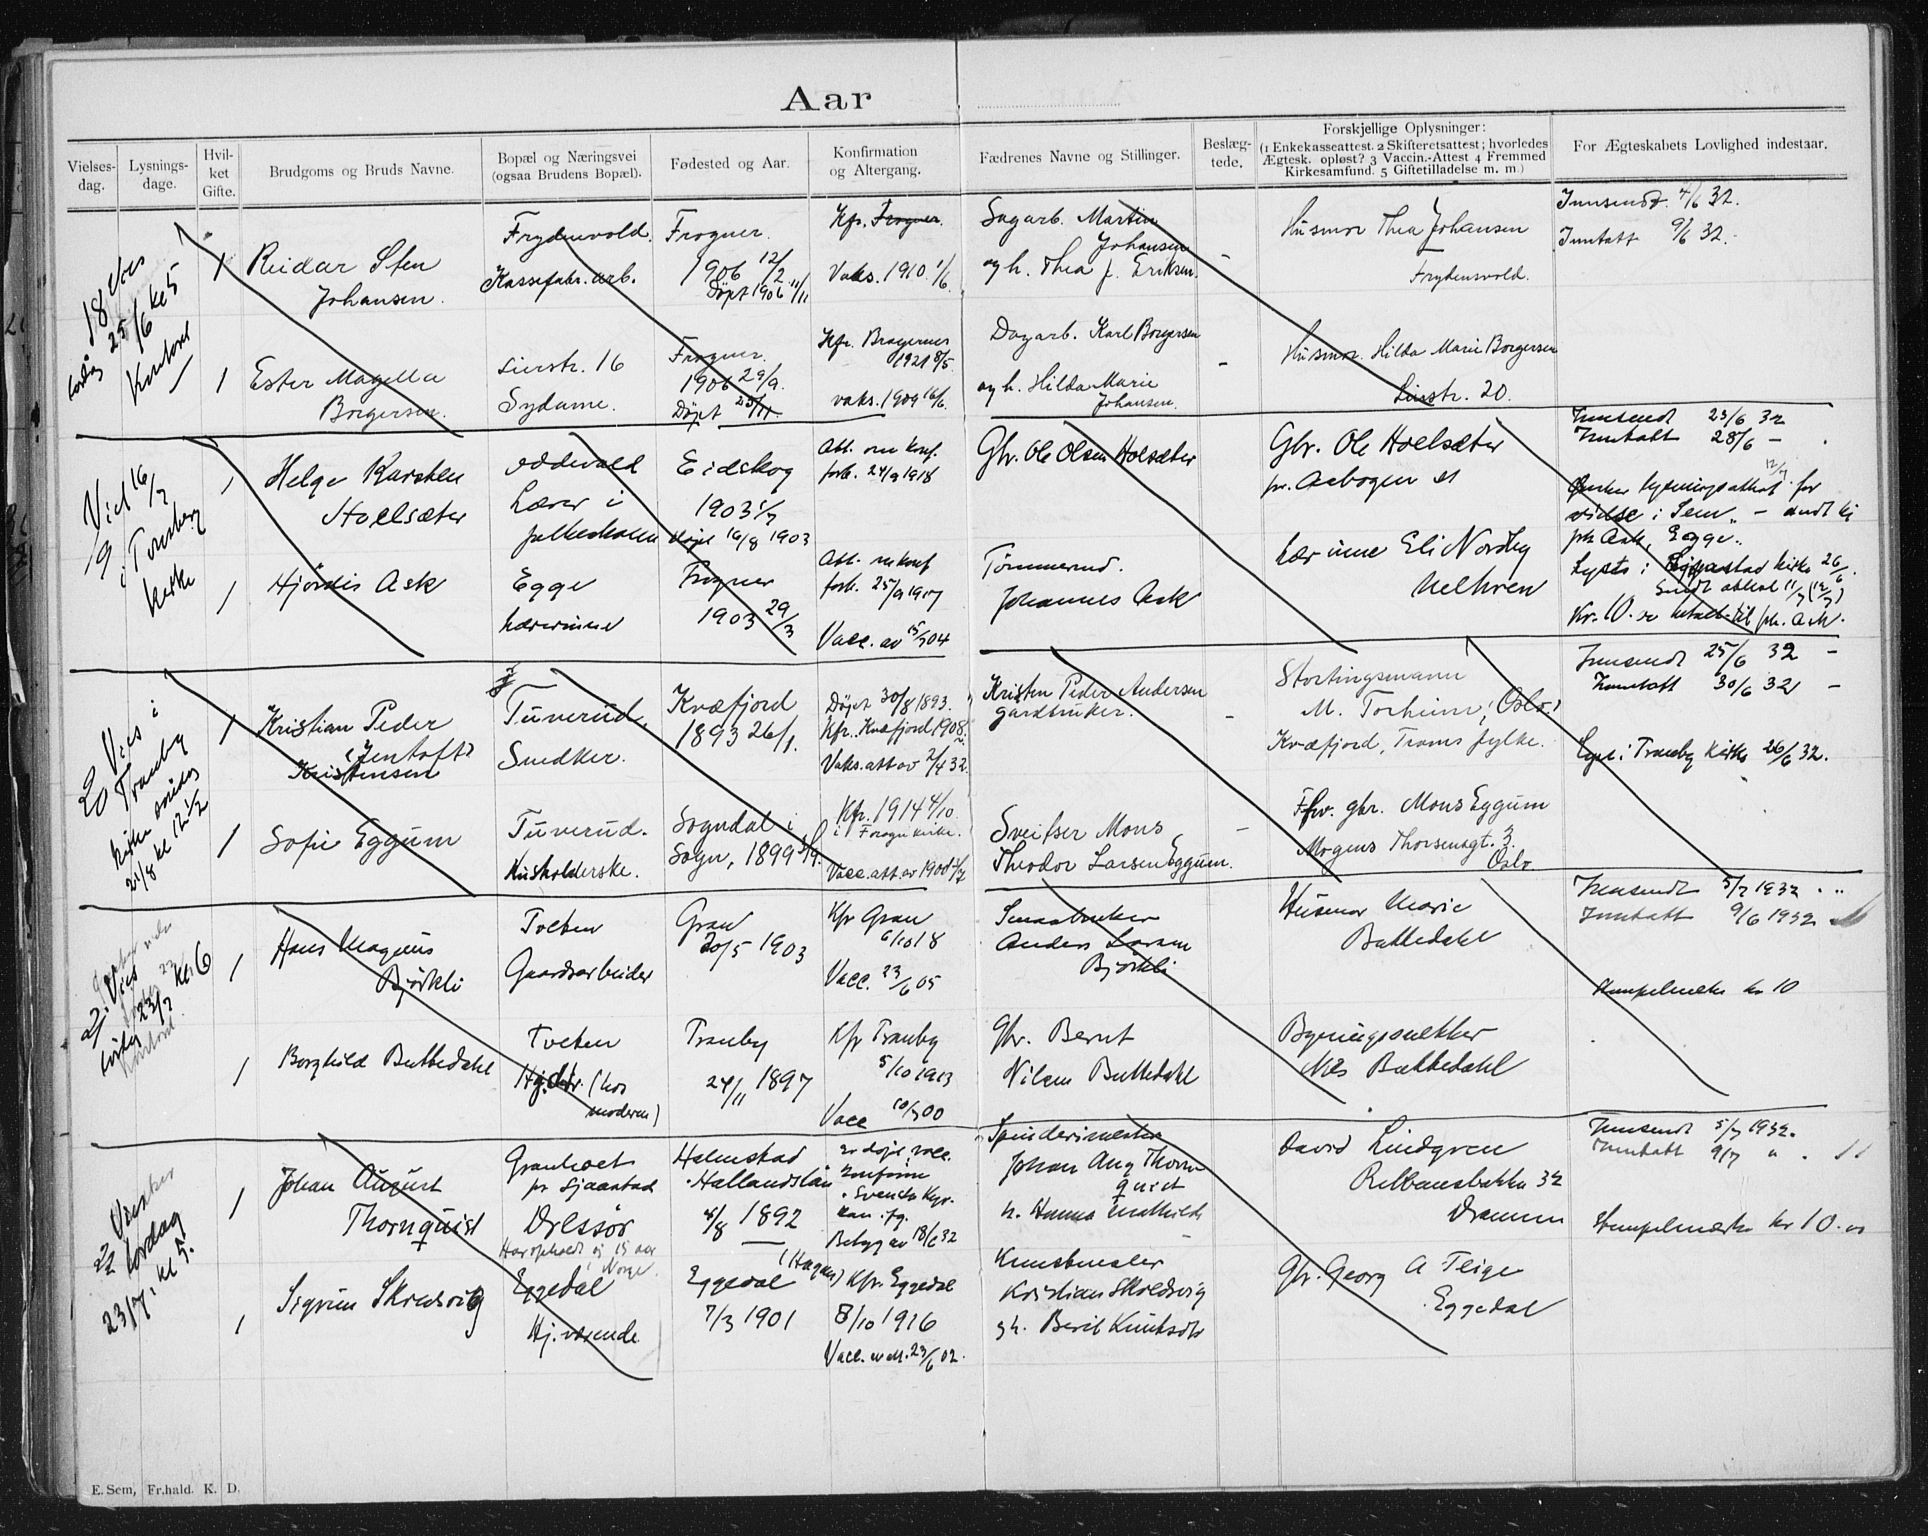 Aar
Vielses-
dag.
Lysnings-
dage.
Hvil-
ket
Gifte.
Brudgoms og Bruds Navne.
Bopæl og Næringsvei
(ogsaa Brudens Bopæl).
Fødested og Aar.
Konfirmation
og Altergang.
Fædrenes Navne og Stillinger.
Beslæg-
tede.
Forskjellige Oplysninger:
(1 Enkekasseattest. 2 Skifteretsattest; hvorledes
Ægtesk. opløst? 3 Vaccin.-Attest 4 Fremmed
Kirkesamfund. 5 Giftetilladelse m. m.)
For Ægteskabets Lovlighed indestaar.
18 Vies
lørdag 25/6 kl 5
Kontoret
1
Reidar Sten
Johansen.
Frydenvold.
Kassefabr. arb.
Frogner.
1906 12/2
Døpt 1906 11/11
Kfr. Frogner.
Vaks. 1910 1/6.
Sagarb. Martin
Johansen
og h. Thea f. Eriksen.
-
Husmor Thea Johansen
Frydensvold.
Innsendt 4/6 32.
Inntatt 9/6 32.
1
Ester Magella
Borgersen.
Lierstr. 16
Sydame.
Frogner.
1906 29/9.
Døpt 25/11.
Kfr. Bragernes
1921 8/5.
vaks. 1909 16/6.
Dagarb. Karl Borgersen
og h. Hilda Marie
Johansen.
-
Husmor. Hilda Marie Borgersen
Lierstr. 20.
Viet 16/7
19 i Tønsberg
kirke
1
Helge Karsten
Hoelsæter
Oddevold
Lærer i
folkeskolen
Eidskog
1903 1/7
døpt 16/8 1903
Att. om konf.
forb. 24/9 1918
Gbr. Ole Olsen Holsæter
Gbr. Ole Hoelsæter
pr. Aabogen st
Innsendt 23/6 32
Inntatt 28/6 -
12/7
Ønsker lysningsattest for
vielse i Sem
frk Ask, Egge.
1
Hjørdis Ask
Egge
Lærerinne
Frogner
1903 29/3
Att. om konf
forb. 25/9 1917
Vacc. av 15/9 04
Tømmermd.
Johannes Ask
Lærinne Eli Nordby
Uelhren
Lyst i Sjaastad kirke 26/6.
Sendt attest 11/7 (12/7)
Kr. 10. er betalt til frk. Ask.
20 Vies i
Tranby
kirke søndag
21/8 kl 12 1/2
1
Kristian Peder
(Jentoft)
Kristensen
Tuverud.
Snedker.
Kvæfjord
1893 26/1.
Døpt 30/8 1893.
Kfr. Kvæfjord 1908.
Vaks. att av 2/4 32.
Kristen Peder Andersen
gardbruker.
-
Stortingsmann
M. Torheim, Oslo.
Kvæfjord, Troms fylke.
Innsendt 25/6 32 -
Inntatt 30/6 32 -
Lyst i Tranby kirke 26/6 32.
1
Sofie Eggum
Tuverud.
Husholderske.
Sogndal i
Sogn, 1899
Kfr. 1914 4/10
i Frogn kirke.
Vacc. att. av 1900
Sveitser Mons
Theodor Larsen Eggum.
-
Fhv. gbr. Mons Eggum
Mogens Thorsensgt. 3.
Oslo.
21. Vies
lørdag 23/7 kl 6
kontoret
1
Hans Magnus
Bjørkli
Tveten
Gaardsarbeider
Gran
20/5 1903
Kfr Gran
6/10 18
Vacc. 23/6 05
Smaabruker
Anders Larsen
Bjørkli
Husmor Marie
Bættedahl
Innsendt 5/7 1932
Inntatt 9/6 1932
Stempelmerke kr 10
1
Borghild Buttedahl
Tveten
Hj. dtr. (hos
moderen)
Tranby
24/11 1897
Kfr Tranby
5/10 1913
Vacc 10/9 00
Gbr. Bernt
Nilsen Buttedahl
Bygningssnekker
Nils Bættedahl
22 Ønsker
lørdag
23/7. kl 5.
1
Johan August
Thornquist
Granhoet
pr Sjaastad
Dressør
Har opholdt sig 15 aar
i Norge.
Halmstad
Hallandslän
8/8 1892
er døpt, vacc.
konfirm
i Svenska Kyr-
kan ifg.
Betyg av 18/6 32
Spinderimester
Johan Aug Thorn
quist
h. Hanna Mathilde
David Lindgren
Rebbansbakken 32
Drammen
Innsendt 5/7 1932.
Inntatt 9/7 "
Stempelmerke kr 10.00
1
Sigrun Skredsvig
Eggedal
Hj. værende
(Hagan)
Eggedal
7/3 1901
Kfr. Eggedal
8/10 1916
Vacc. att. 23/6 02.
Kunstmaler
Kristian Skredsvig
og h. Beril Knutsdtr
Gbr. Georg A Teige
Eggedal
E. Sem, Fr.hald. K. D.